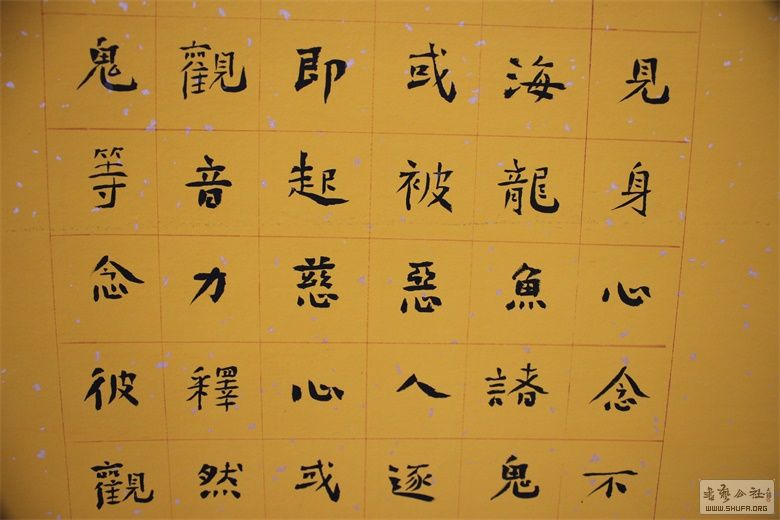 見身心念不
海龍魚諸鬼
或被惡人逐
即起慈心或
觀音力釋然
鬼等念彼觀
書藝公社
WWW.SHUFA.ORG